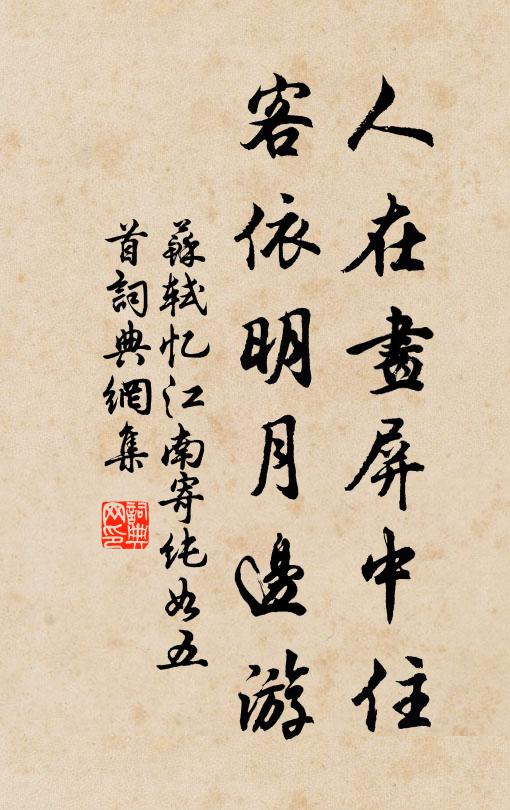 人在畫屏中住
客依明月邊游
蘇軾忆江南寄纯如五
首詞典網集
詞典网印